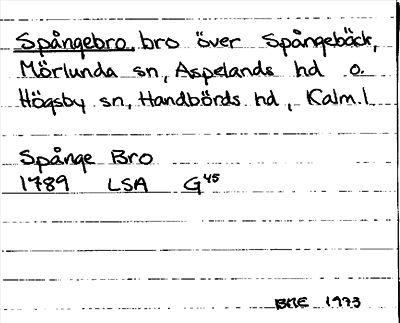 Spångebro, bro över Spångebäck,
Mörlunda sn, Aspelands hd o.
Högsby sn, Handbörds hd, Kalm.l
Spånge Bro
1789 LSA G45
BME 1973